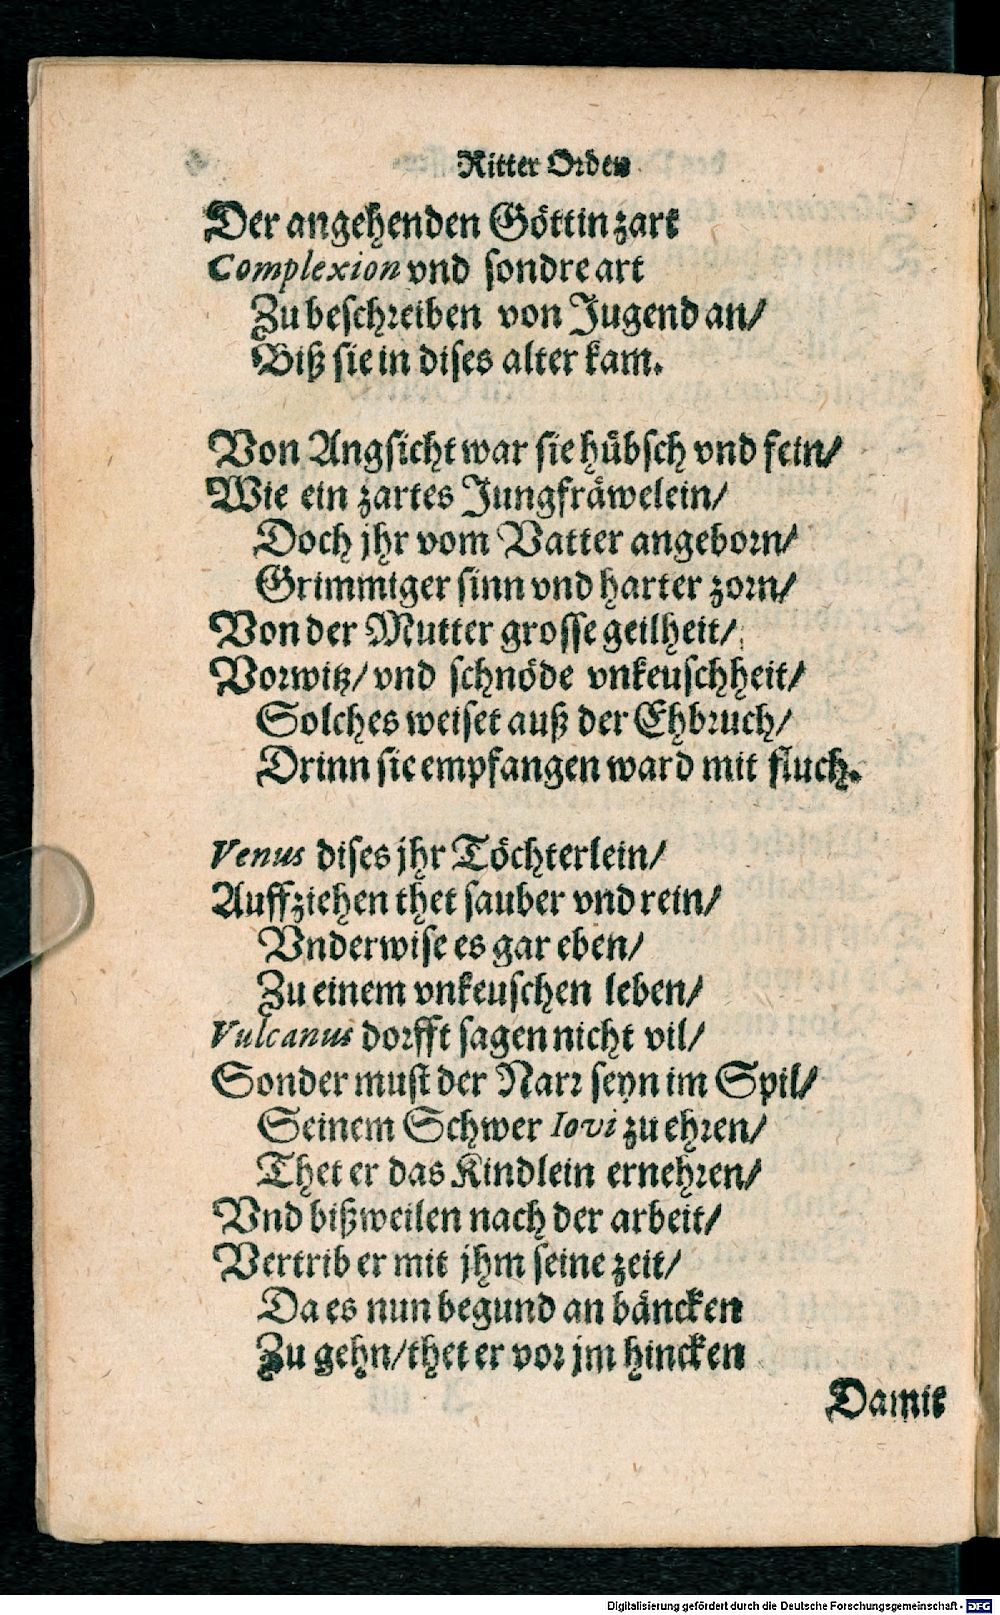 Ritter Orden
Der angehenden Göttin zart
Complexion vnd sondre art
Zu beschreiben von Jugend an/
Biß sie in dises alter kam.
Von Angsicht war sie hübsch vnd fein/
Wie ein zartes Jungfräwelein/
Doch jhr vom Vatter angeborn/
Grimmiger sinn vnd harter zorn/
Von der Mutter grosse geilheit/
Vorwitz/ vnd schnöde vnkeuschheit/
Solches weiset auß der Ehbruch/
Drinn sie empfangen ward mit fluch.
Venus dises jhr Töchterlein/
Auffziehen thet sauber vnd rein/
Vnderwise es gar eben/
Zu einem vnkeuschen leben/
Vulcanus dorfft sagen nicht vil/
Sonder must der Narr seyn im Spil/
Seinem Schwer Iovi zu ehren/
Thet er das Kindlein ernehren/
Vnd bißweilen nach der arbeit/
Vertrib er mit jhm seine zeit/
Da es nun begund an bäncken
Zu gehn/ thet er vor jm hincken
Damit
Digitalisierung gefördert durch die Deutsche Forschungsgemeinschaft - DFG